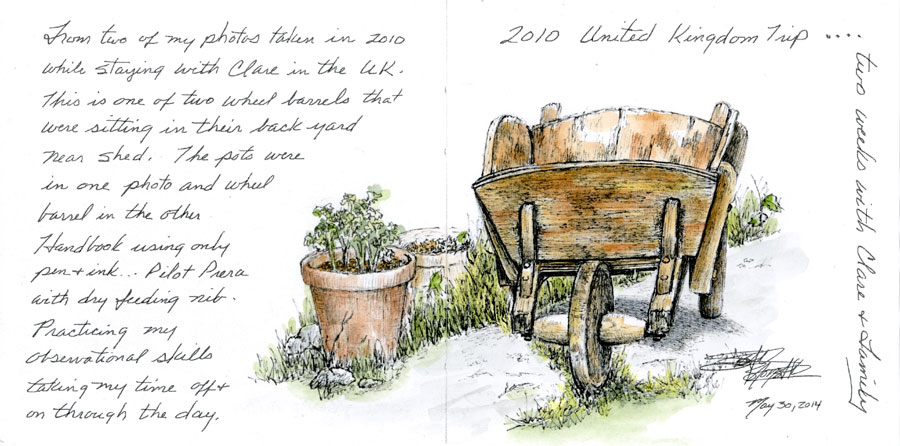 From two of my photos taken in 2010
while staying with Clare in the UK.
This is one of two wheel barrels that
were sitting in their back yard
near shed. The pots were
in one photo and wheel
barrel in the other.
Handbook using only
pen + ink... Pilot Prera
with dry feeding nib.
Practicing my
observational skills
taking my time off +
on through the day.
2010 United Kingdom Trip ....
two weeks with Clare & Family
May 30, 2014